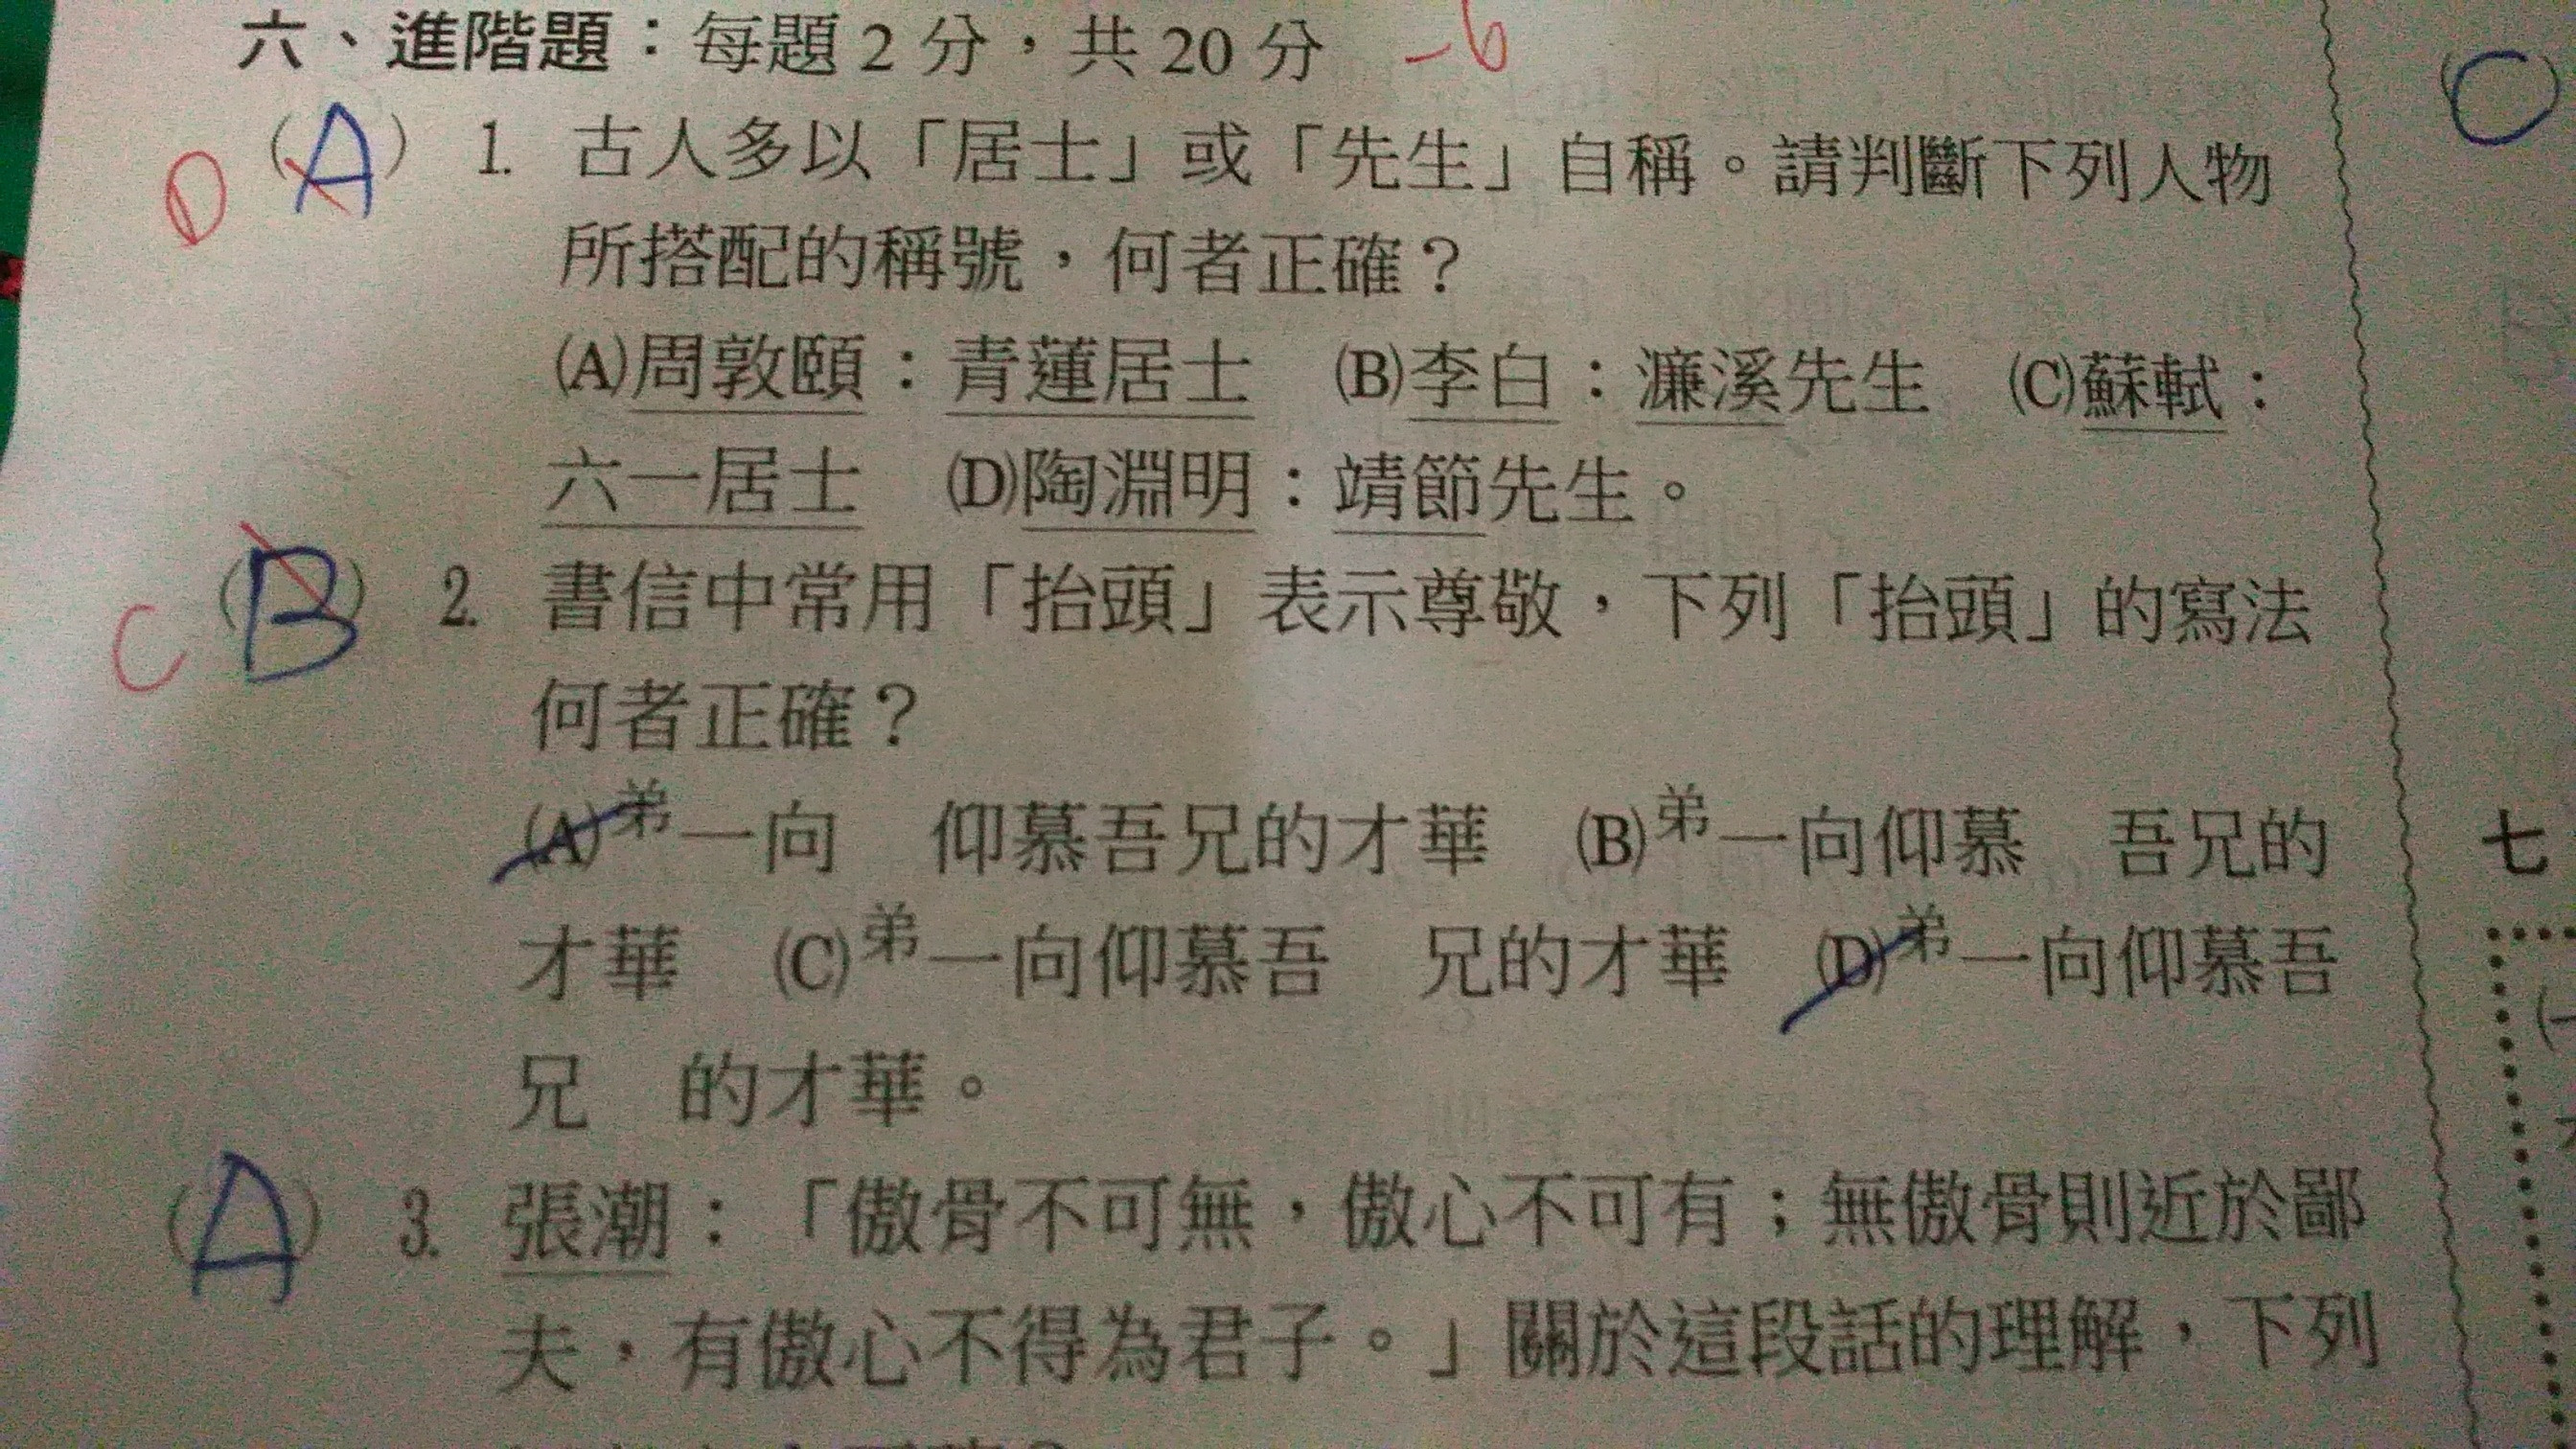 六、進階題：每題2分，共20分 -6
D (A) 1. 古人多以「居士」或「先生」自稱。請判斷下列人物
所搭配的稱號，何者正確？
(A)周敦頤：青蓮居士 (B)李白：濂溪先生 (C)蘇軾：
六一居士 (D)陶淵明：靖節先生。
C (B) 2. 書信中常用「抬頭」表示尊敬，下列「抬頭」的寫法
何者正確？
(A)弟一向　仰慕吾兄的才華 (B)弟一向仰慕　吾兄的
才華 (C)弟一向仰慕吾　兄的才華 (D)弟一向仰慕吾
兄　的才華。
(A) 3. 張潮：「傲骨不可無，傲心不可有；無傲骨則近於鄙
夫，有傲心不得為君子。」關於這段話的理解，下列
(C)
七